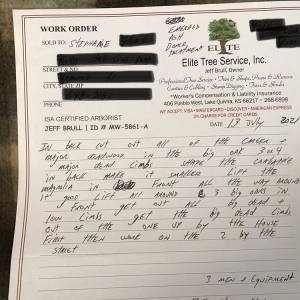 WORK ORDER
SOLD TO: STEPHANIE
STREET & NO.
CITY, STATE, ZIP
EMERALD
ASH
BORER
TREATMENT
ELITE
Elite Tree Service, Inc.
Jeff Brull, Owner
Professional Tree Service • Trim & Shape, Prune & Remove
Cavities & Cabling • Stump Digging • Trees & Shrubs
*Worker's Compensation & Liability Insurance
406 Pueblo West, Lake Quivira, KS 66217 • 268-6898
WE ACCEPT VISA • MASTERCARD • DISCOVER • AMERICAN EXPRESS
3% CHARGE FOR CREDIT CARDS
ISA CERTIFIED ARBORIST
JEFF BRULL | ID # MW-5861-A
DATE 13 July 2021
IN BACK CUT OUT ALL OF THE LARGER &
MAJOR DEADWOOD IN THE BIG OAK 3 or 4
MAJOR DEAD LIMBS SHAPE THE
IN BACK MAKE IT SMALLER LIFT THE
MAGNOLIA IN FRONT ALL THE WAY AROUND
IT GOOD LIFT ALL AROUND 3 BIG OAKS IN
FRONT GET OUT ALL BIG DEAD &
LOW LIMBS GET THE BIG DEAD LIMB
OUT OF THE ONE UP BY THE HOUSE
FIRST THEN WORK ON THE 2 BY THE
STREET
3 MEN & EQUIPMENT